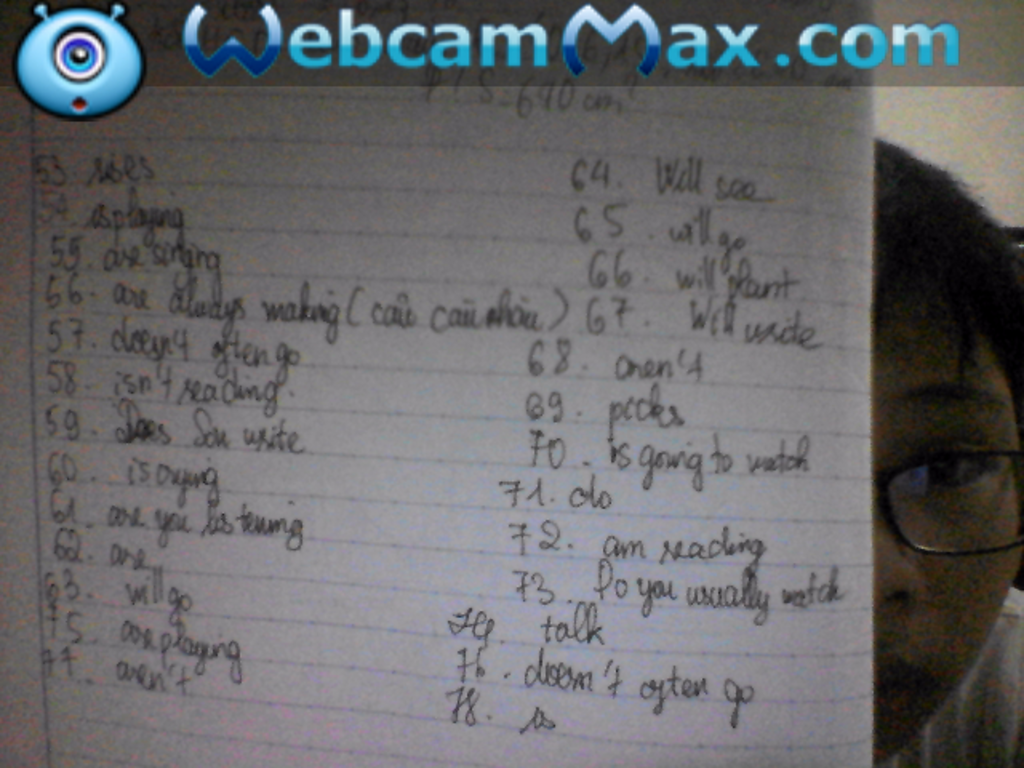 WebcamMax.com
P/S 690 cm²
53 rises
54. is playing
55. are singing
56. are always making (câu càu nhàu)
57. doesn't often go
58. isn't reading.
59. Does Sou write
60. is crying
61. are you listening
62. are
63. will go
75. are playing
77. aren't
64. Will see
65. will go
66. will plant
67. Will write
68. aren't
69. picks
70. is going to watch
71. do
72. am reading
73. Do you usually watch
74. talk
76. doesn't often go
78. is